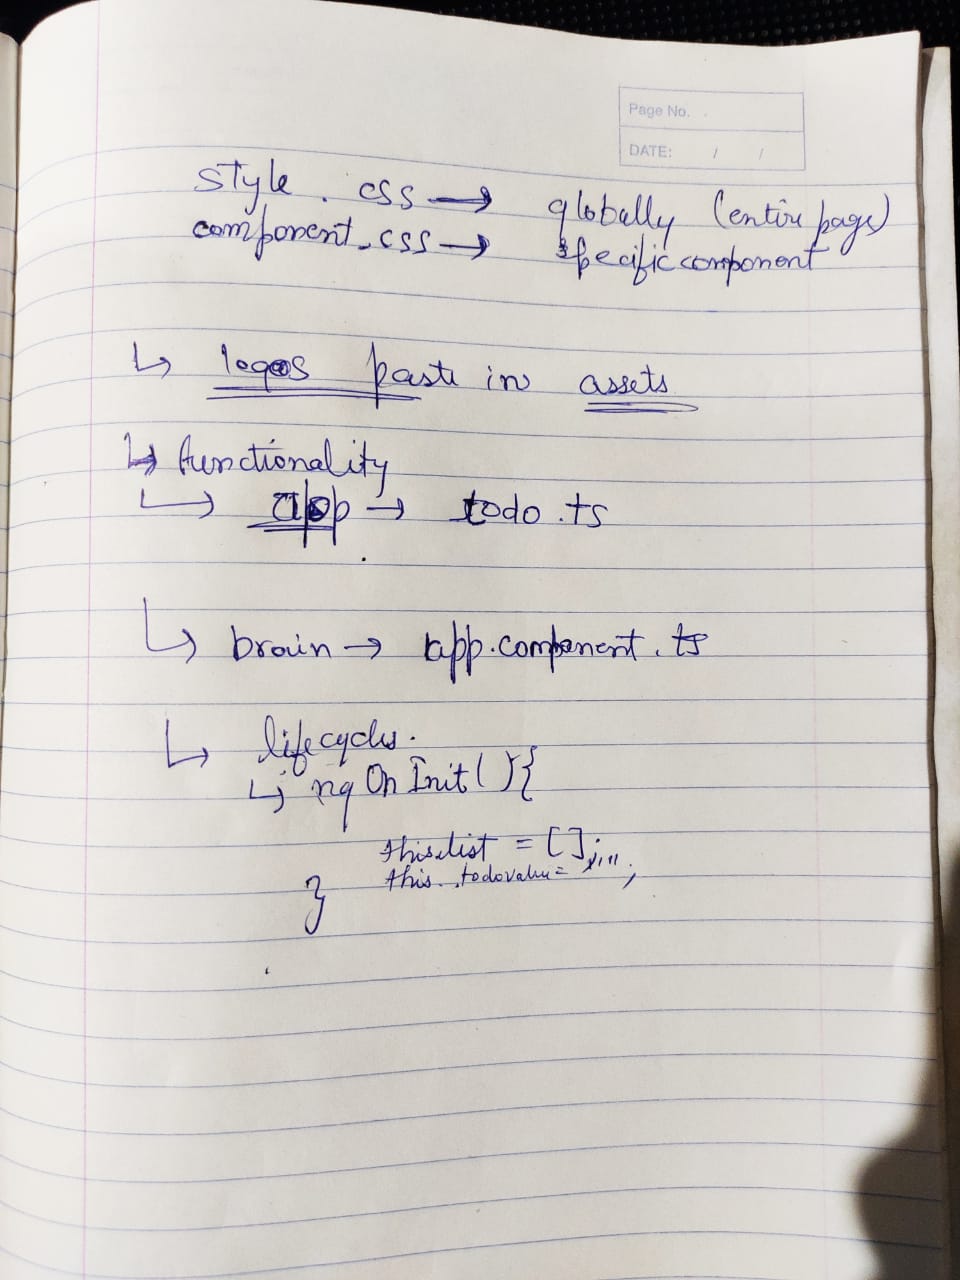 Page No.
DATE: / /
style . css → globally (entire page)
component.css → specific component
↳ logos paste in assets
↳ functionality
↳ app → todo.ts
↳ brain → app.component.ts
↳ lifecycles.
↳ ngOnInit(){
this.list = [];
this.todovalue = "";
}